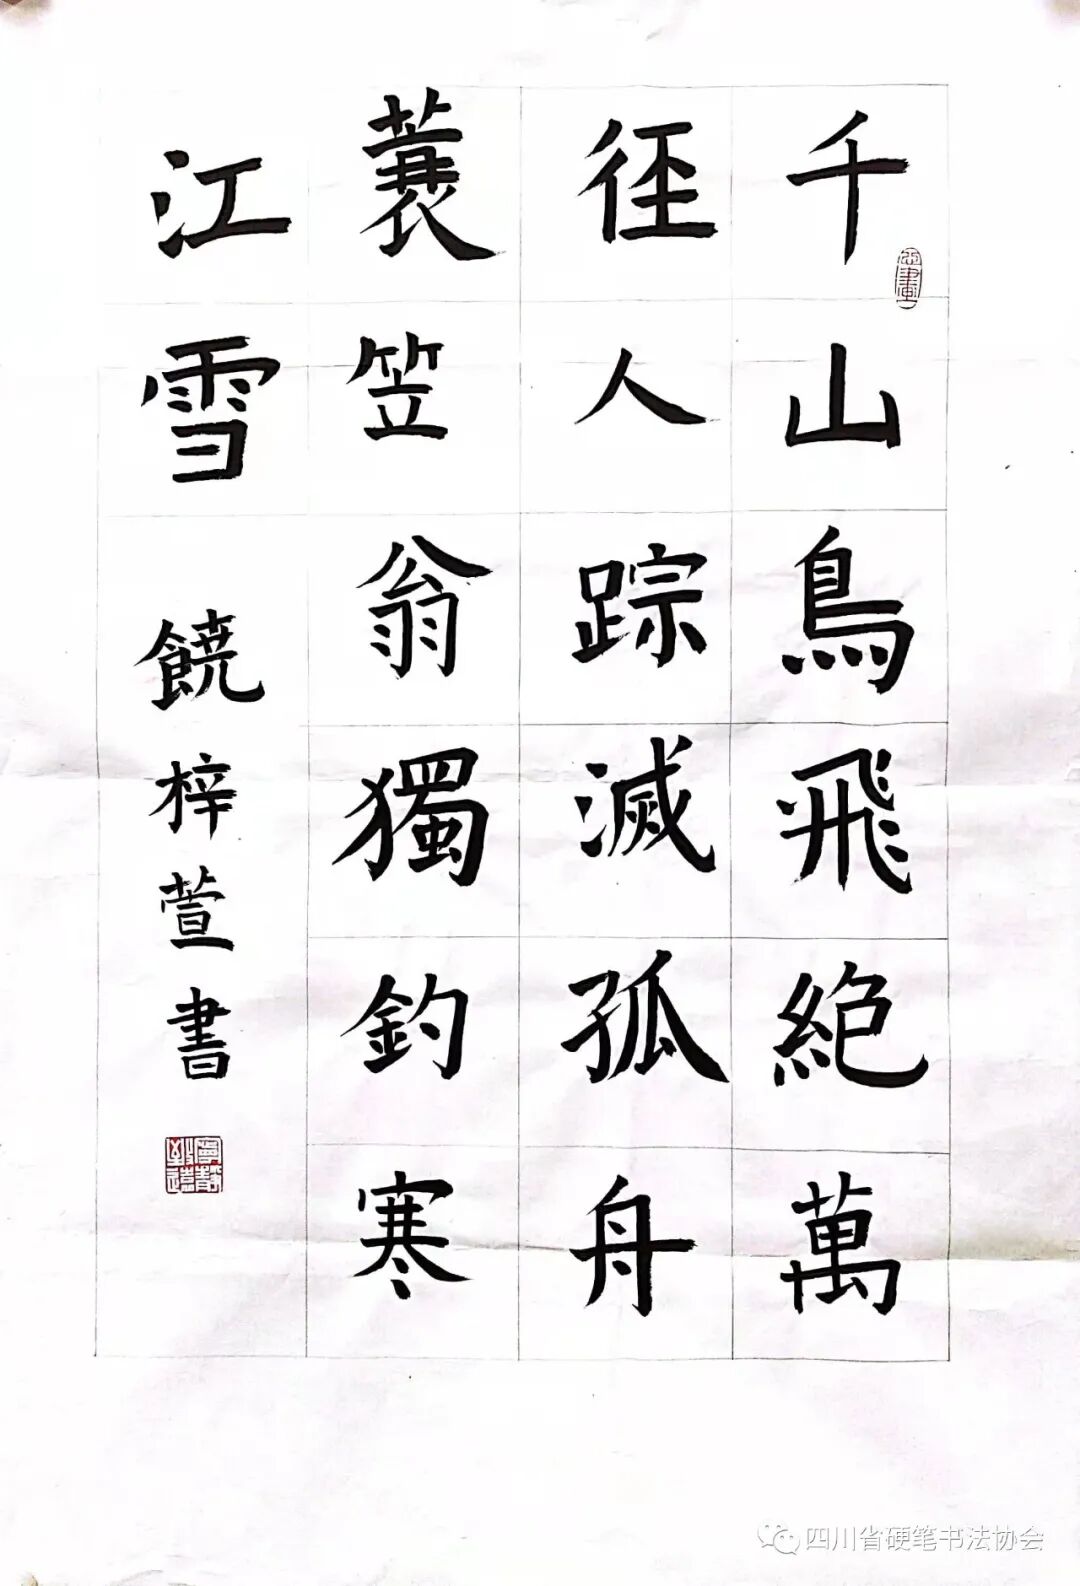 千山鳥飛絶萬
径人踪滅孤舟
蓑笠翁獨釣寒
江雪
饒梓萱書
寧靜致遠
四川省硬笔书法协会